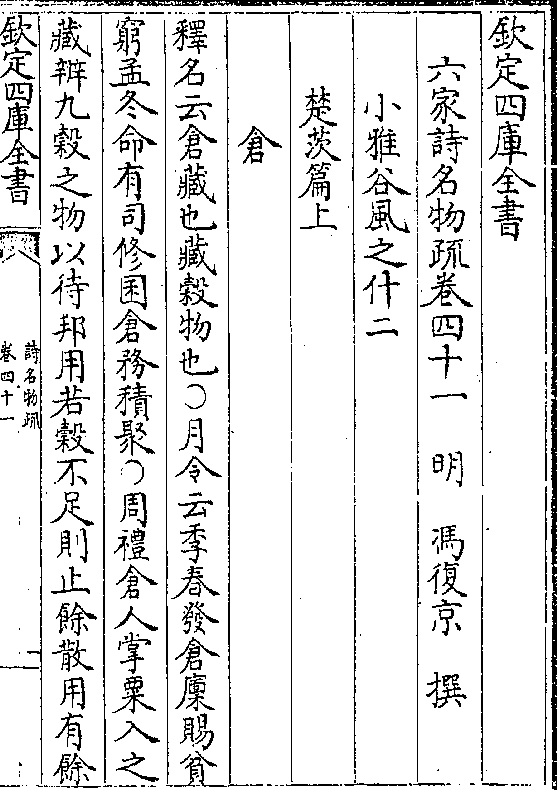 欽定四庫全書
六家詩名物疏卷四十一　明　馮復京　撰
小雅谷風之什二
楚茨篇上
倉
釋名云倉藏也藏穀物也○月令云季春發倉廩賜貧
窮孟冬命有司修囷倉務積聚○周禮倉人掌粟入之
藏辨九穀之物以待邦用若穀不足則止餘散用有餘
欽定四庫全書
詩名物疏
卷四十一
一